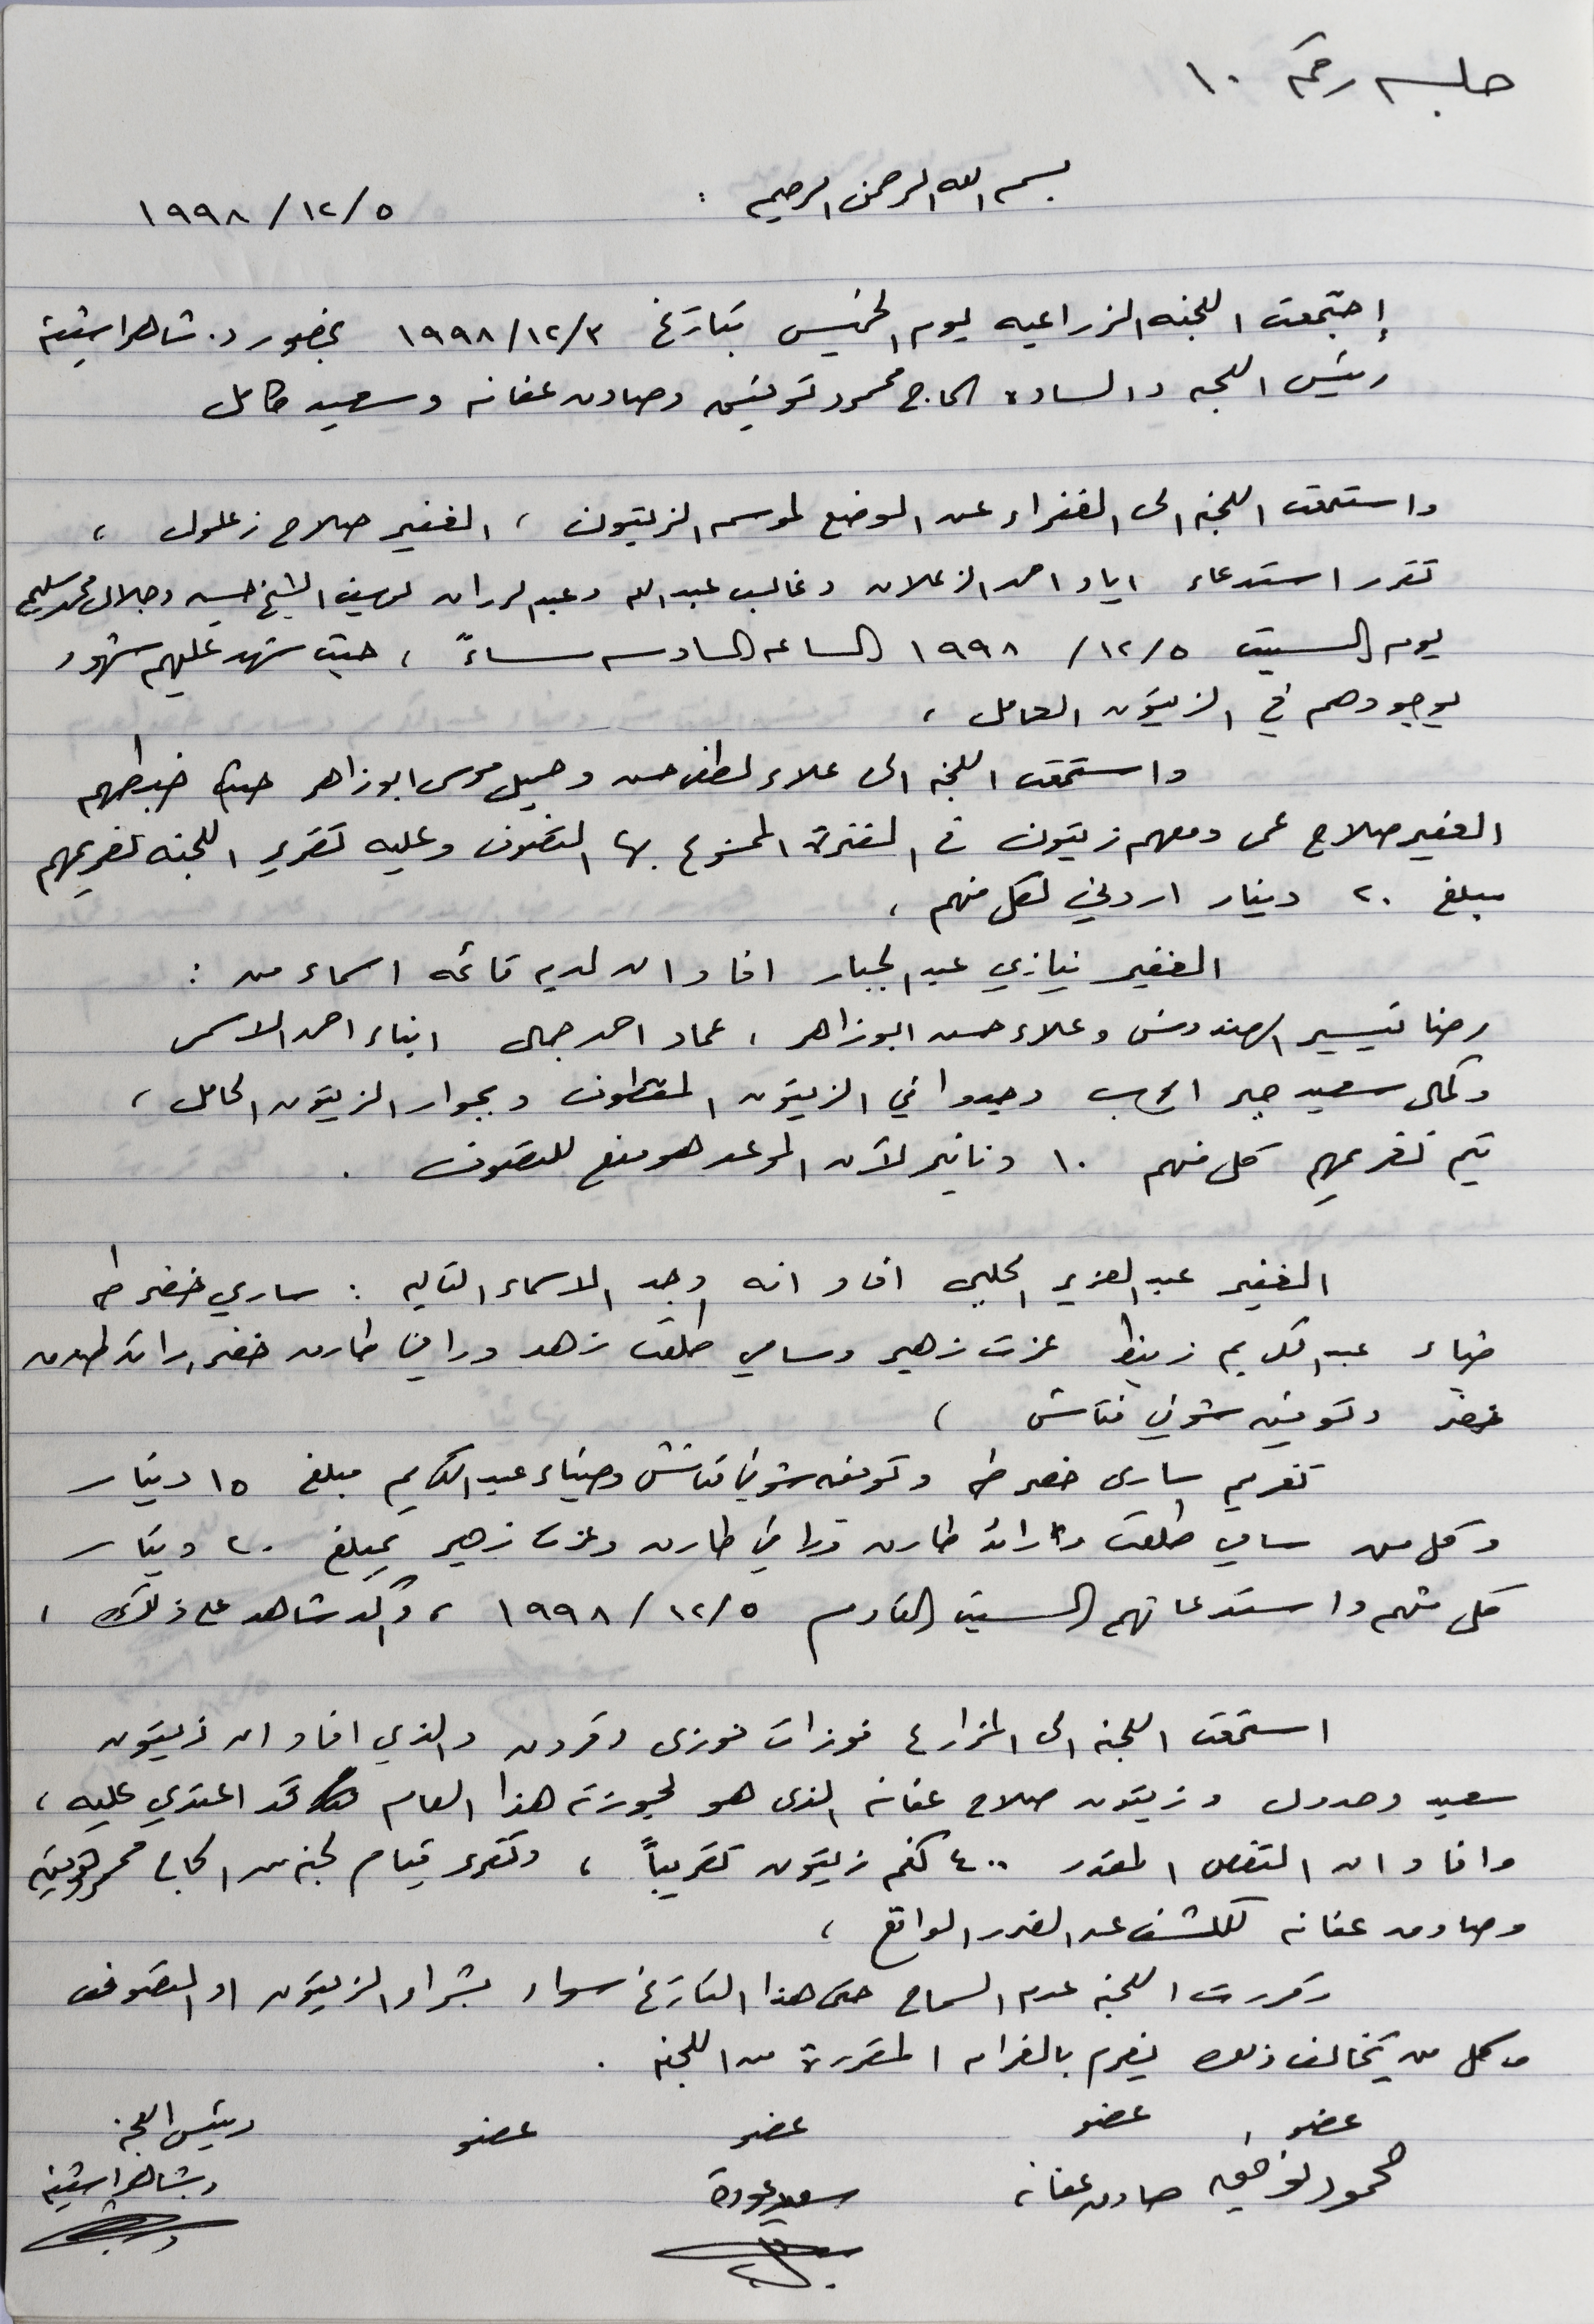 جلسه رقم ١٠
بسم الله الرحمن الرحيم :
١٩٩٨/١٢/٥
إجتمعت اللجنه الزراعيه يوم الخميس بتاريخ ١٩٩٨/١٢/٣ بحضور د. شاهر اشتية
رئيس اللجنه والساده الحاج محمود توفيق وصادق عفانه وسعيد كامل
واستمعت اللجنه الى الغفراء عن الوضع لموسم الزيتون ، الغفير صلاح زغلول ،
تقرر استدعاء اياد احمد الزعلان وغالب عبد الله وعبد الرزاق يوسف الشيخ حسين وجلال محمد سليم
يوم السبت ١٩٩٨/١٢/٥ الساعه السادسه مساءً ، حيث شهد عليهم شهود
بوجودهم في الزيتون الحامل ،
واستمعت اللجنه الى علاء لطفي حسن وجميل موسى ابو زاهر حيث ضبطهم
الغفير صلاح ومعهم زيتون في الفترة الممنوع بها التصوف وعليه تقرر اللجنه تغريمهم
مبلغ ٢٠ دينار اردني لكل منهم ،
الغفير نيازي عبد الجبار افاد ان لديه قائمه اسماء من :
رضا تيسير الهندوش وعلاء حسن ابو زاهر ، عماد احمد جمال ابناء احمد الاسمر
وكمال سعيد جبر وجدوا في الزيتون المقطوف وبجوار الزيتون الحامل ،
يتم تغريمهم كل منهم ١٠ دنانير لأن الموعد هو منع للتصوف .
الغفير عبد العزيز الحلبي افاد انه وجد الاسماء التاليه : ساري خضر طه
ضياء عبد الكريم عزت زهير وسامي طلعت زهد ورامي طارق خضر رائد طارق
خضر وتوفيق شوقي فتاش )
تغريم ساري خضر طه وتوفيق شوقي فتاش وضياء عبد الكريم مبلغ ١٥ دينار
وكل من سامي طلعت ورائد طارق ورامي طارق وعزت زهير بمبلغ ٢٠ دينار
كل منهم واستدعائهم السبت القادم ١٩٩٨/١٢/٥ ، وأكد شاهد على ذلك ،
استمعت اللجنه الى المزارع فوزات فوزي والذي افاد ان زيتون
سعيد وزيتون صلاح عفانه الذي هو بحوزته هذا العام قد اعتدي عليه ،
وافاد ان النقص المقدر ٤٠٠ كغم زيتون تقريباً ، وتقرر قيام لجنه من الحاج محمود توفيق
وصادق عفانه للكشف عن الضرر الواقع ،
وقررت اللجنه عدم السماح حتى هذا التاريخ سواء بشراء الزيتون او التصوف
وكل من يخالف ذلك يغرم بالغرامه المقررة من اللجنه .
عضو عضو عضو عضو رئيس اللجنه
محمود توفيق صادق عفانه سعيد عودة د. شاهر اشتيه